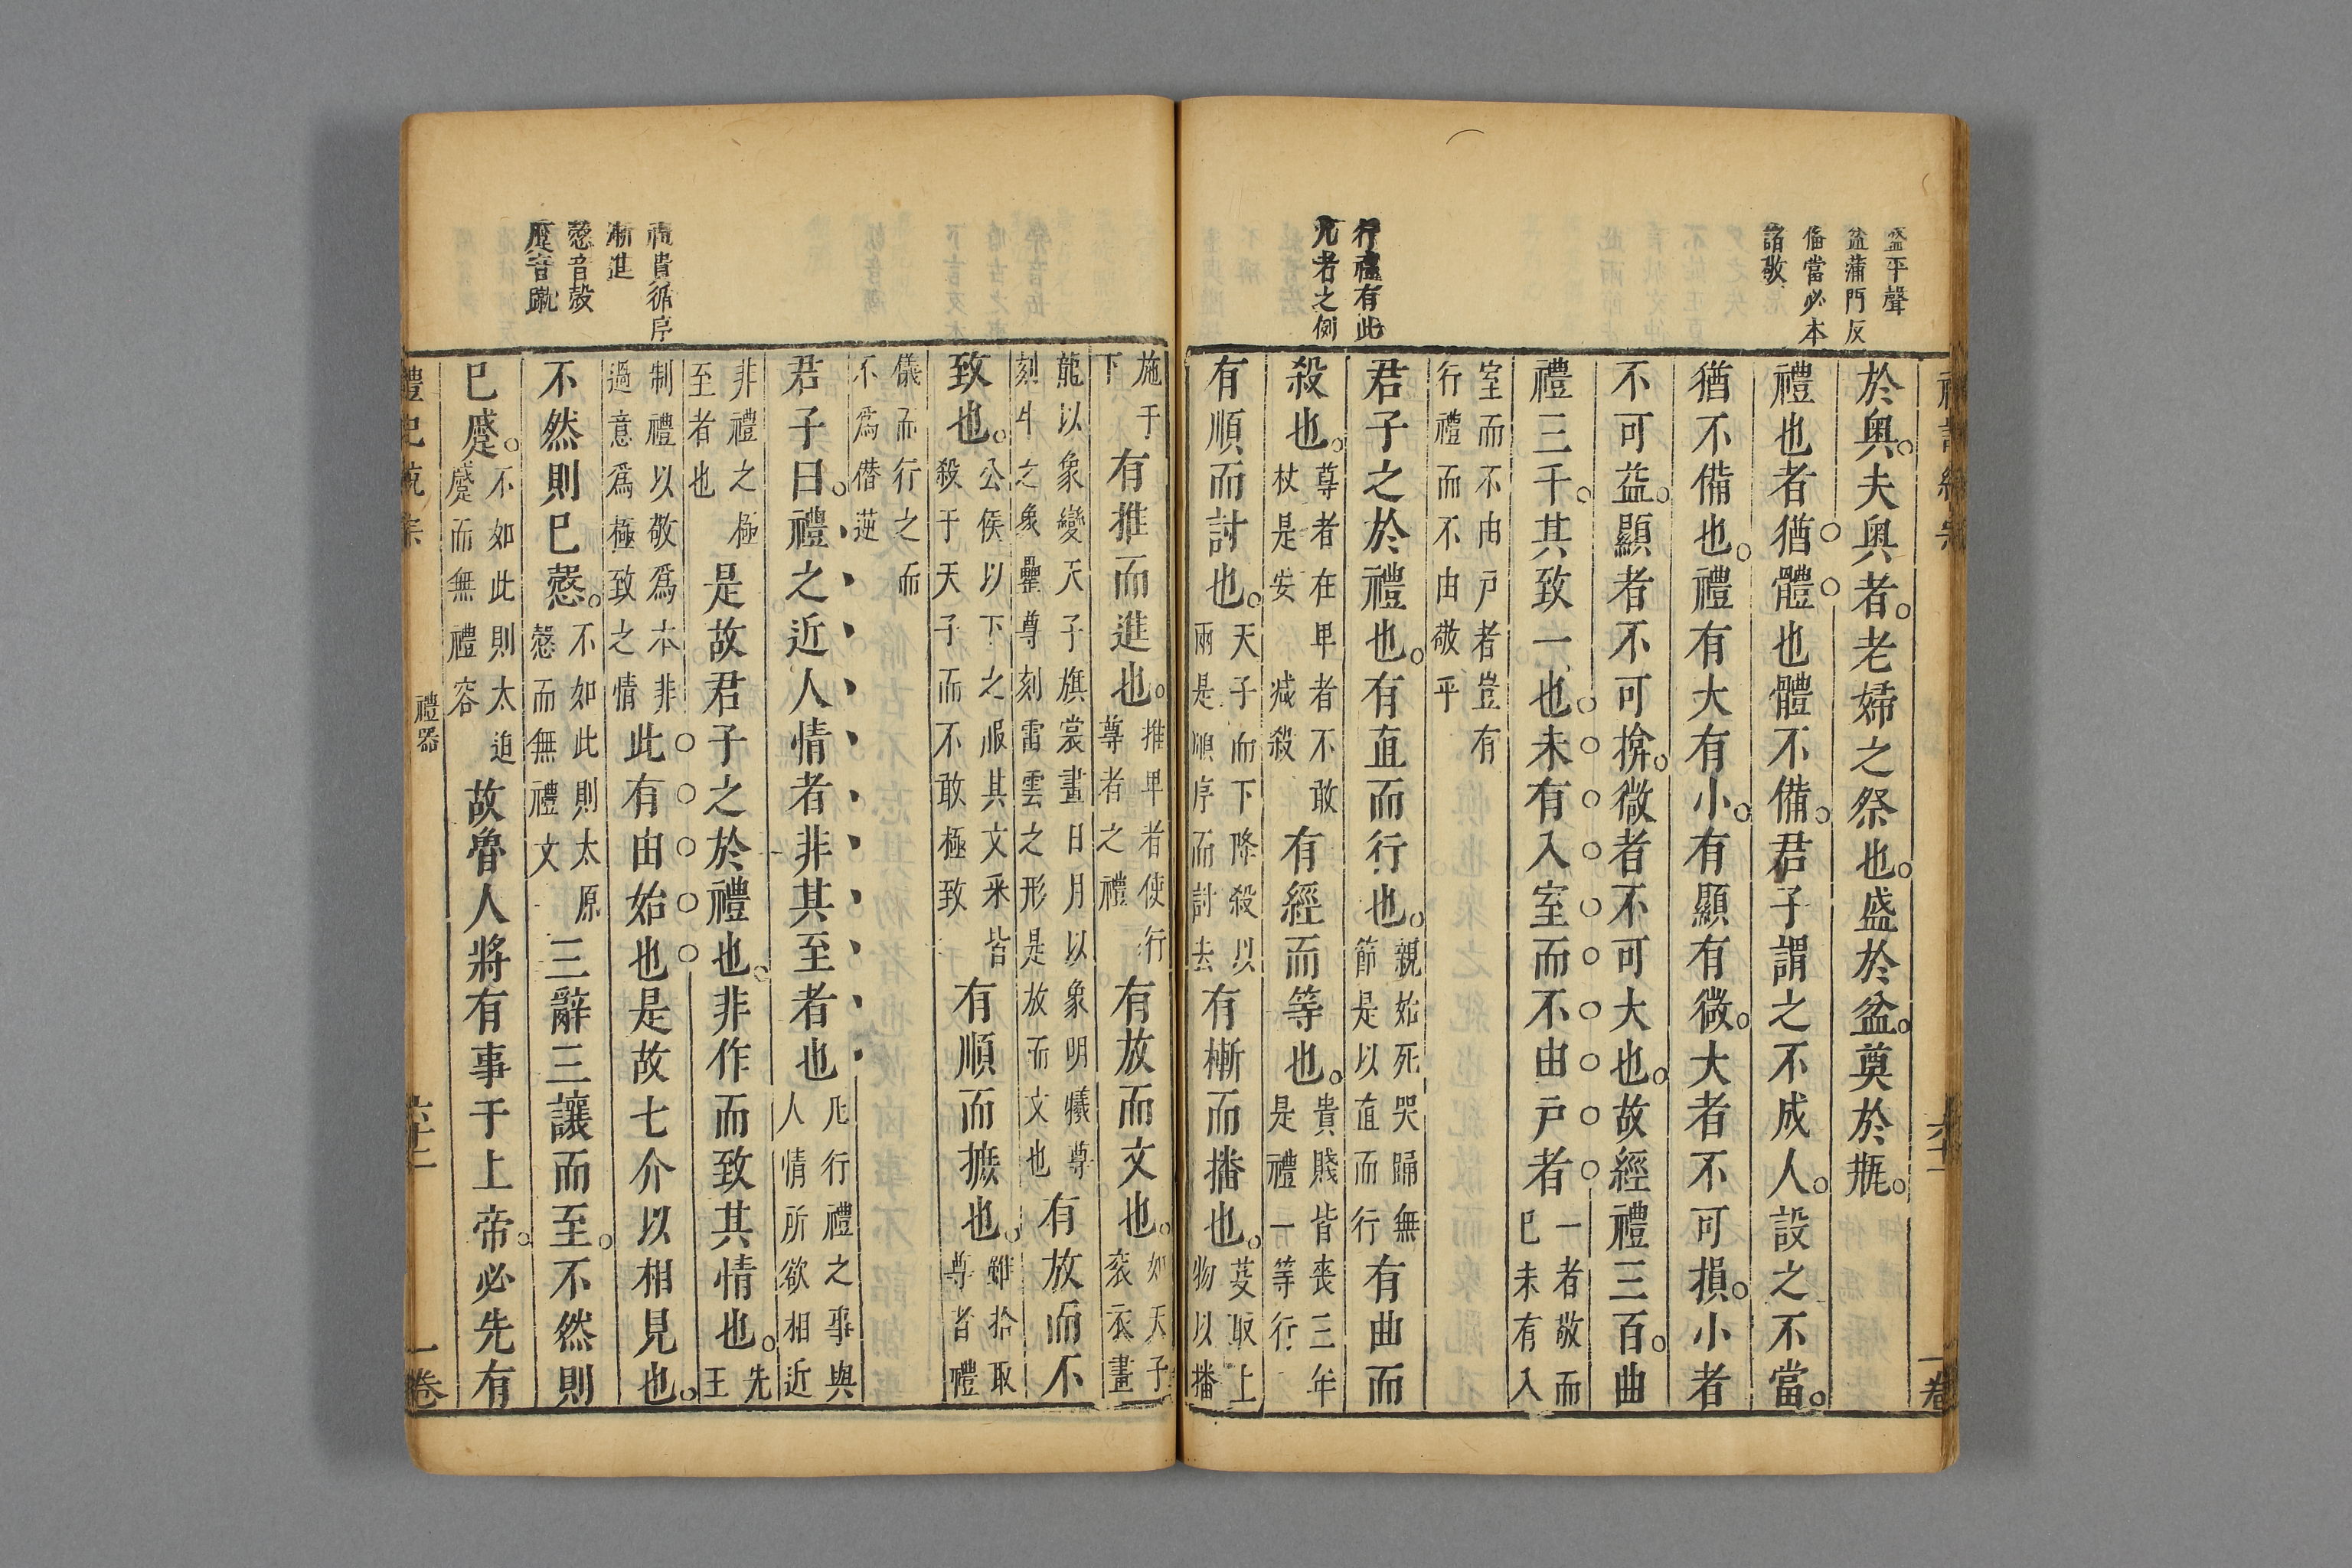 盛平聲
盆蒲門反
僃當必本
諸敬
行禮有此
九者之例
於奧夫奧者老婦之祭也盛於盆奠於甁
禮也者猶體也體不備君子謂之不成人設之不當
猶不備也禮有大有小有顯有微大者不可損小者
不可益顯者不可揜微者不可大也故經禮三百曲
禮三千其致一也未有入室而不由戸者一者敬而巳未有入
室而不由戸者豈有行禮而不由敬乎
君子之於禮也有直而行也親始死哭踊無節是以直而行有曲而
殺也尊者在卑者不敢杖是安减殺有經而等也貴賤皆喪三年是禮一等行
有順而討也天子而下降殺以兩是順序而討去有摲而播也芟取上物以播
禮貴循序
漸進
慤音殼
蹙音蹴
施于下有推而進也推卑者使行尊者之禮有放而文也如天子衮衣畫
龍以象變天子旗裳畫日月以象明犧尊刻牛之象罍尊刻雷雲之形是放而文也有放而不
致也公侯以下之服其文采皆殺于天子而不敢極致有順而摭也雖拾取尊者禮
儀而行之而不爲僭逆
君子曰禮之近人情者非其至者也凡行禮之事與人情所欲相近
非禮之極至者也是故君子之於禮也非作而致其情也先王
制禮以敬爲本非過意爲極致之情此有由始也是故七介以相見也
不然則巳慤不如此則太原慤而無禮文三辭三讓而至不然則
巳蹙不如此則太迫蹙而無禮容故魯人將有事于上帝必先有
禮器
六十二
一卷